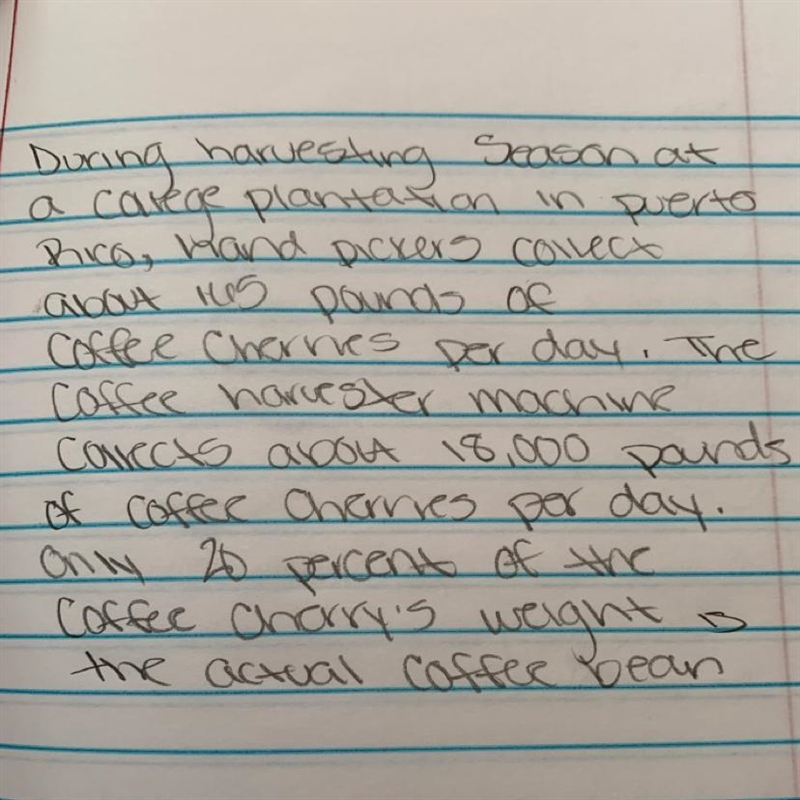 During harvesting Season at
a cofege plantation in puerto
Rico, Hand pickers collect
about 165 pounds of
Coffee Cherries per day. The
Coffee harvester machine
Collects about 18,000 pounds
of coffee cherries per day.
Only 20 percent of the
Coffee Cherry's weight is
the actual coffee bean